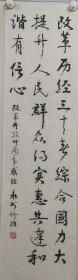 改革历经三十春综合国力大
提升人民群众得实惠共建和
谐有信心 改革开放卅周年感